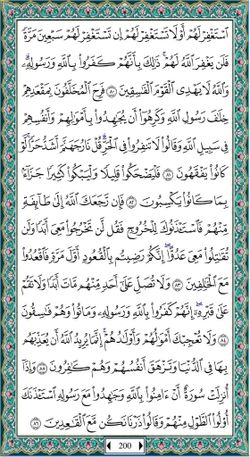 ٱسۡتَغۡفِرۡ لَهُمۡ أَوۡ لَا تَسۡتَغۡفِرۡ لَهُمۡ إِن تَسۡتَغۡفِرۡ لَهُمۡ سَبۡعِينَ مَرَّةٗ
فَلَن يَغۡفِرَ ٱللَّهُ لَهُمۡۚ ذَٰلِكَ بِأَنَّهُمۡ كَفَرُواْ بِٱللَّهِ وَرَسُولِهِۦۗ
وَٱللَّهُ لَا يَهۡدِي ٱلۡقَوۡمَ ٱلۡفَٰسِقِينَ ٨٠ فَرِحَ ٱلۡمُخَلَّفُونَ بِمَقۡعَدِهِمۡ
خِلَٰفَ رَسُولِ ٱللَّهِ وَكَرِهُوٓاْ أَن يُجَٰهِدُواْ بِأَمۡوَٰلِهِمۡ وَأَنفُسِهِمۡ
فِي سَبِيلِ ٱللَّهِ وَقَالُواْ لَا تَنفِرُواْ فِي ٱلۡحَرِّۗ قُلۡ نَارُ جَهَنَّمَ أَشَدُّ حَرّٗاۚ لَّوۡ
كَانُواْ يَفۡقَهُونَ ٨١ فَلۡيَضۡحَكُواْ قَلِيلٗا وَلۡيَبۡكُواْ كَثِيرٗا جَزَآءَۢ
بِمَا كَانُواْ يَكۡسِبُونَ ٨٢ فَإِن رَّجَعَكَ ٱللَّهُ إِلَىٰ طَآئِفَةٖ
مِّنۡهُمۡ فَٱسۡتَـٔۡذَنُوكَ لِلۡخُرُوجِ فَقُل لَّن تَخۡرُجُواْ مَعِيَ أَبَدٗا وَلَن
تُقَٰتِلُواْ مَعِيَ عَدُوًّاۖ إِنَّكُمۡ رَضِيتُم بِٱلۡقُعُودِ أَوَّلَ مَرَّةٖ فَٱقۡعُدُواْ
مَعَ ٱلۡخَٰلِفِينَ ٨٣ وَلَا تُصَلِّ عَلَىٰٓ أَحَدٖ مِّنۡهُم مَّاتَ أَبَدٗا وَلَا تَقُمۡ
عَلَىٰ قَبۡرِهِۦٓۖ إِنَّهُمۡ كَفَرُواْ بِٱللَّهِ وَرَسُولِهِۦ وَمَاتُواْ وَهُمۡ فَٰسِقُونَ
٨٤ وَلَا تُعۡجِبۡكَ أَمۡوَٰلُهُمۡ وَأَوۡلَٰدُهُمۡۚ إِنَّمَا يُرِيدُ ٱللَّهُ أَن يُعَذِّبَهُم
بِهَا فِي ٱلدُّنۡيَا وَتَزۡهَقَ أَنفُسُهُمۡ وَهُمۡ كَٰفِرُونَ ٨٥ وَإِذَآ
أُنزِلَتۡ سُورَةٌ أَنۡ ءَامِنُواْ بِٱللَّهِ وَجَٰهِدُواْ مَعَ رَسُولِهِ ٱسۡتَـٔۡذَنَكَ
أُوْلُواْ ٱلطَّوۡلِ مِنۡهُمۡ وَقَالُواْ ذَرۡنَا نَكُن مَّعَ ٱلۡقَٰعِدِينَ ٨٦
200